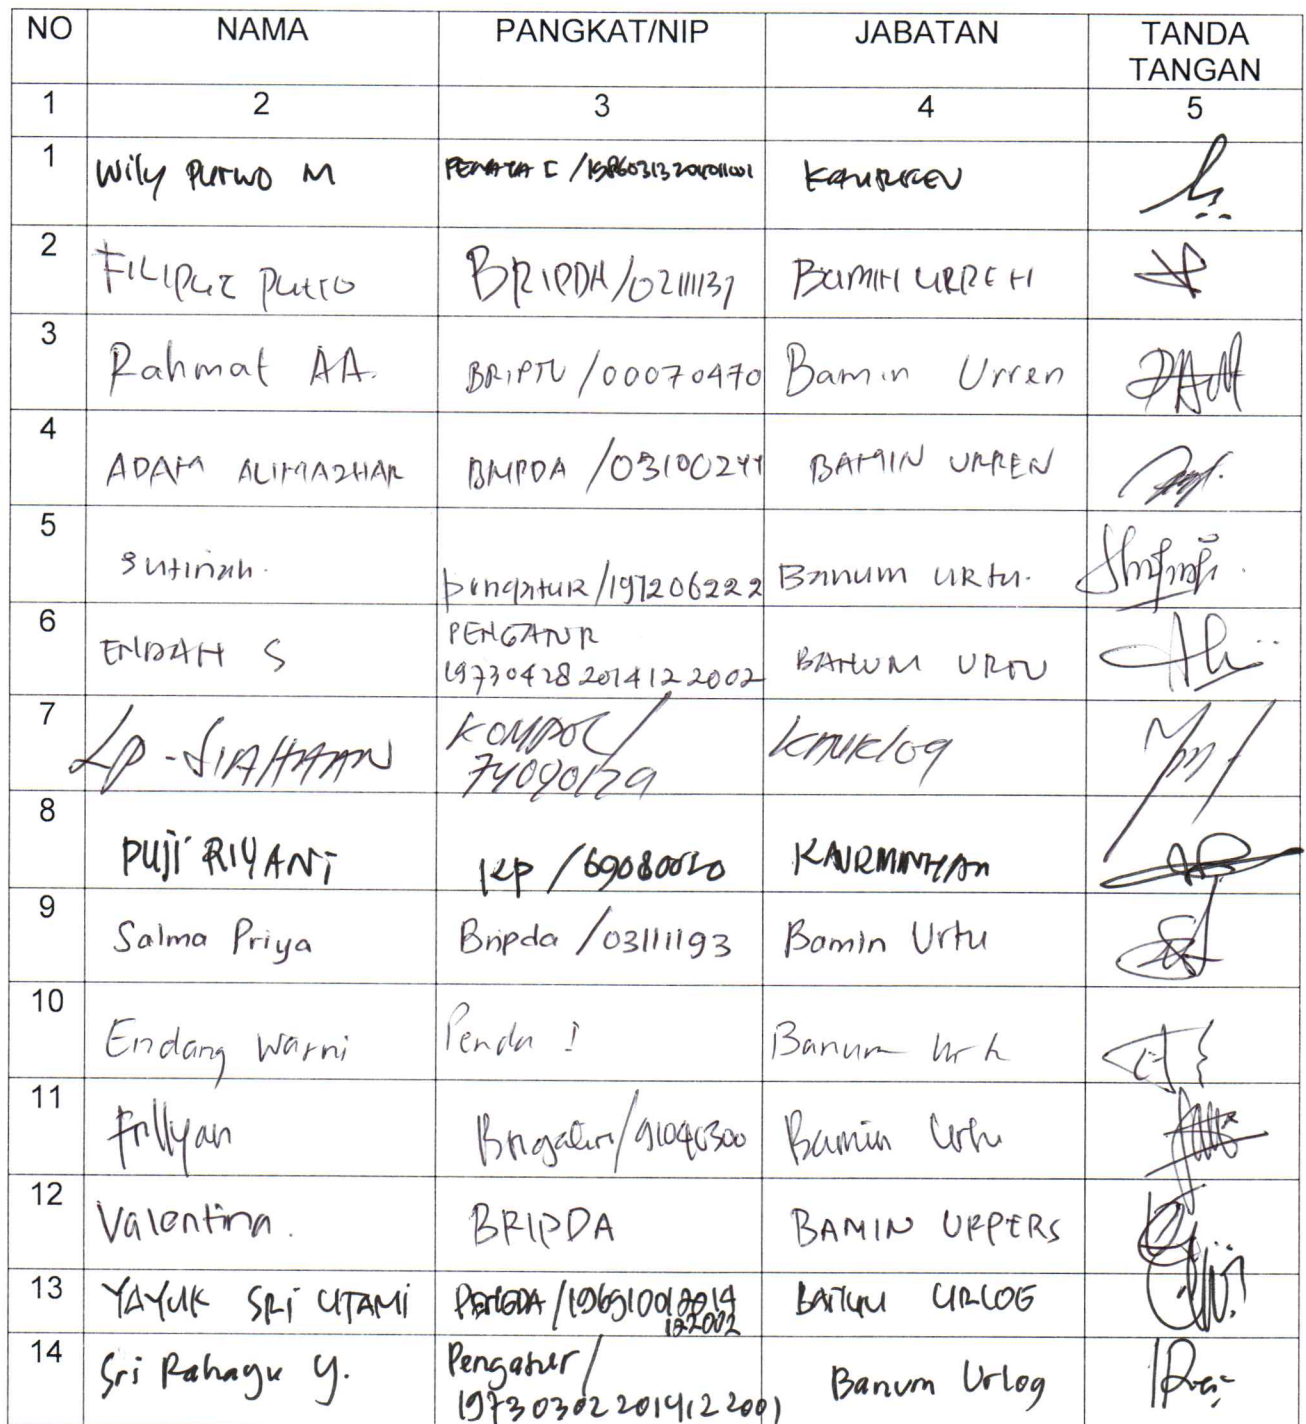 NO NAMA PANGKAT/NIP JABATAN TANDA
TANGAN
1 2 3 4 5
1 Wily Purwo M PENATA I /198603132010011001 KAURREN
2 FILIPUZ PUTRO BRIPDA/02111137 BAMIN URREN
3 Rahmat AA. BRIPTU /00070470 Bamin Urren
4 ADAM ALIMAZHAR BRIPDA /03100244 BAMIN URREN
5 Sutinah. pengatur/197206222 Banum URtu.
6 ENDAH S PENGATUR
197304282014122002 BANUM URTU
7 LP-SIAHAAN KOMPOL/
74090129 KAURLOG
8 PUJI RIYANTI KP /69080020 KAURMINHAN
9 Salma Priya Bripda /03111193 Bamin Urtu
10 Endang Warni Penda I Banum Urtu
11 Frillyan Brigadir/91040300 Bamin Urtu
12 Valentina. BRIPDA BAMIN URPERS
13 YAYUK SRI UTAMI PENGDA/196910012014
122002 BANUM URLOG
14 Sri Rahayu Y. Pengatur/
197303022014122001 Banum Urlog